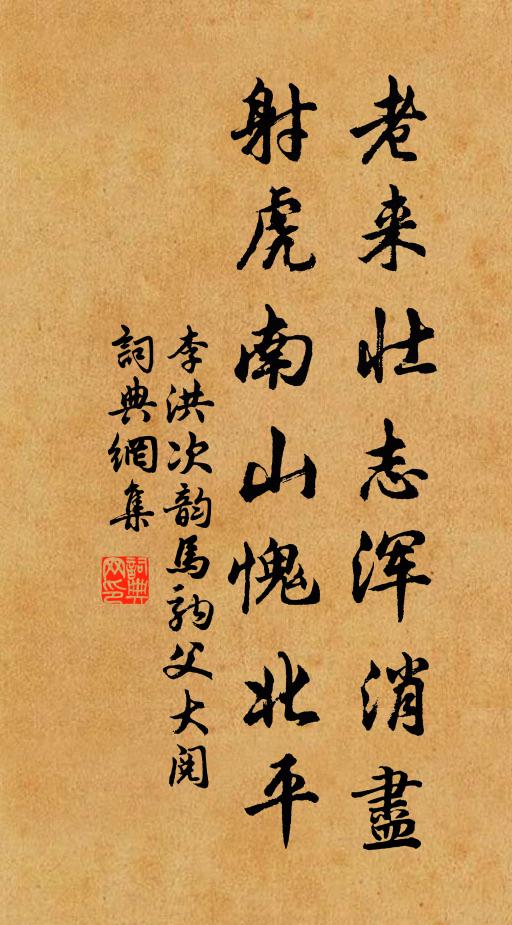 老来壮志浑消盡
射虎南山愧北平
李洪次韵馬駒父大閱
詞典網集
詞典网印